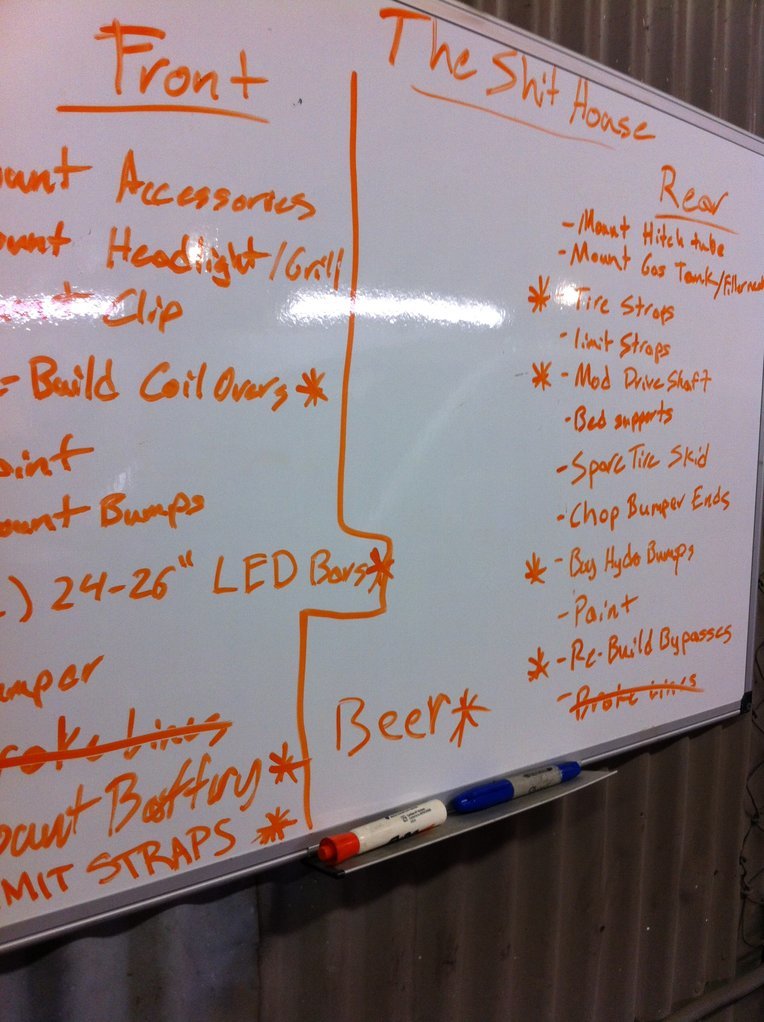 Front
ount Accessories
ount Headlight/Grill
Clip
e-Build Coil Overs *
aint
ount Bumps
) 24-26" LED Bars *
umper
roke Lines
ount Battery *
IMIT STRAPS *
The Shit House
Rear
- Mount Hitch tube
- Mount Gas Tank/Filler neck
* - Tire Straps
- limit straps
* - Mod Drive Shaft
- Bed supports
- Spare Tire Skid
- Chop Bumper Ends
* - Buy Hydro Bumps
- Paint
* - Re-Build Bypasses
- Brake Lines
Beer *